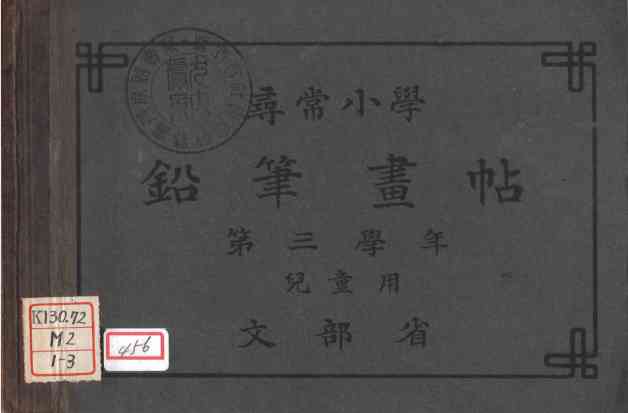 尋常小學
鉛筆畫帖
第三學年
兒童用
文部省
K130.72
M2
1-3
456